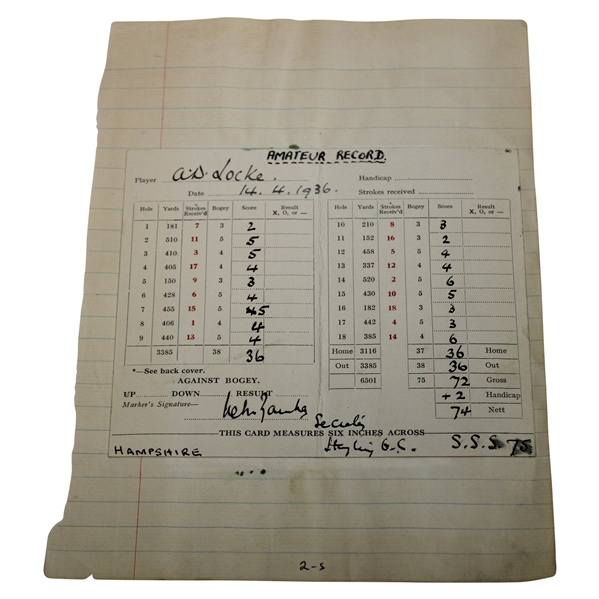 AMATEUR RECORD.
Player A.D. Locke. Handicap
Date 14.4.1936. Strokes received
Hole Yards *Strokes Receiv'd Bogey Score Result X, O, or —
1 181 7 3 2
2 510 11 5 5
3 410 3 4 5
4 405 17 4 4
5 150 9 3 3
6 428 6 5 4
7 455 15 5 45
8 406 1 4 4
9 440 13 5 4
3385 38 36
*—See back cover.
AGAINST BOGEY.
UP DOWN RESULT
Marker's Signature—
Hole Yards *Strokes Receiv'd Bogey Score Result X, O, or —
10 210 8 3 3
11 152 16 3 2
12 458 5 5 4
13 337 12 4 4
14 520 2 5 6
15 430 10 5 5
16 182 18 3 3
17 442 4 5 3
18 385 14 4 6
Home 3116 37 36 Home
Out 3385 38 36 Out
6501 75 72 Gross
+2 Handicap
74 Nett
THIS CARD MEASURES SIX INCHES ACROSS
HAMPSHIRE Hayling G.C. S.S.S 75
2-5